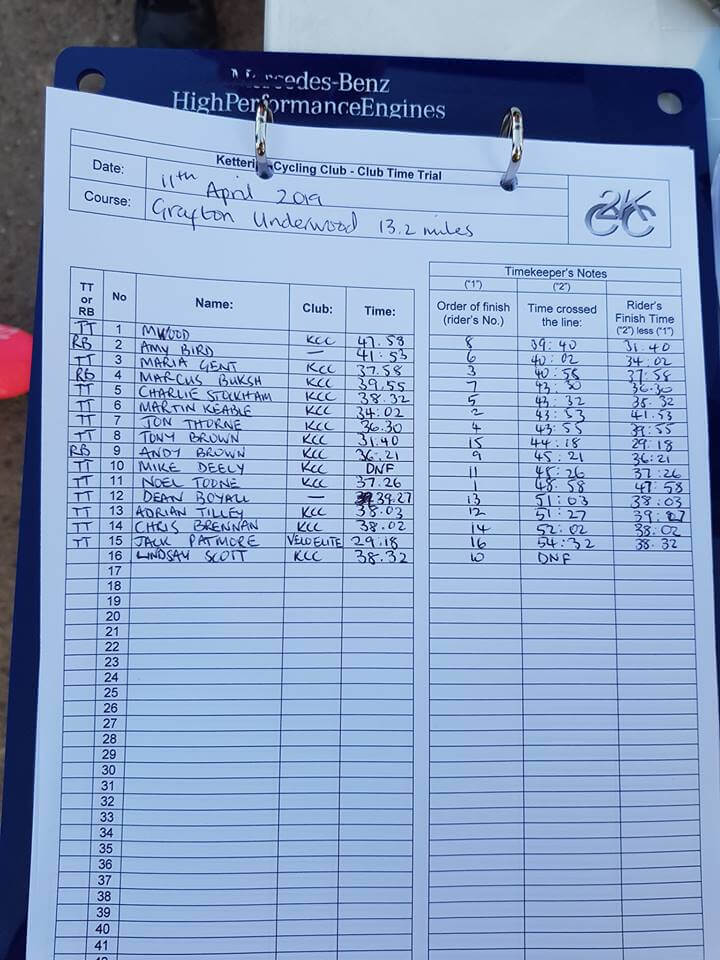 Mercedes-Benz
HighPerformanceEngines
Kettering Cycling Club - Club Time Trial
Date: 11th April 2019
Course: Grafton Underwood 13.2 miles
2KCC
Timekeeper's Notes
TT or RB No Name: Club: Time: ("1") Order of finish (rider's No.) ("2") Time crossed the line: Rider's Finish Time ("2") less ("1")
TT 1 M WOOD KCC 47.58 8 39:40 31.40
RB 2 AMY BIRD — 41:53 6 40:02 34:02
TT 3 MARIA GENT KCC 37.58 3 40:58 37:58
RB 4 MARCUS BUKSH KCC 39.55 7 43:30 36:30
TT 5 CHARLIE STOCKHAM KCC 38.32 5 43:32 38.32
TT 6 MARTIN KEABLE KCC 34:02 2 43:53 41.53
TT 7 JON THORNE KCC 36.30 4 43:55 39:55
TT 8 TONY BROWN KCC 31.40 15 44:18 29:18
RB 9 ANDY BROWN KCC 36.21 9 45:21 36:21
TT 10 MIKE DEELY KCC DNF 11 48:26 37:26
TT 11 NOEL TOONE KCC 37.26 1 48:58 47:58
TT 12 DEAN BOYALL — 39.27 13 51:03 38:03
TT 13 ADRIAN TILLEY KCC 38.03 12 51:27 39:27
TT 14 CHRIS BRENNAN KCC 38.02 14 52:02 38:02
TT 15 JACK PATMORE VELOELITE 29.18 16 54:32 38.32
16 LINDSAY SCOTT KCC 38.32 10 DNF
17
18
19
20
21
22
23
24
25
26
27
28
29
30
31
32
33
34
35
36
37
38
39
40
41